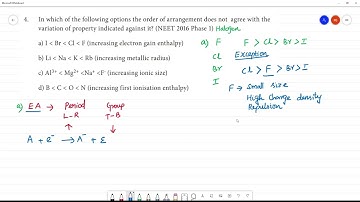 4. In which of the following options the order of arrangement does not agree with the
variation of property indicated against it? (NEET 2016 Phase 1) Halogen
a) I < Br < Cl < F (increasing electron gain enthalpy)
b) Li < Na < K < Rb (increasing metallic radius)
c) Al³⁺ < Mg²⁺ < Na⁺ < F⁻ (increasing ionic size)
d) B < C < O < N (increasing first ionisation enthalpy)
a) EA → Period Group
L-R T-B
↑ ↓
A + e⁻ → A⁻ + E
a) F F > Cl > Br > I
Cl Exception
Br Cl > F > Br > I
I F → Small size
High Charge density
Repulsion